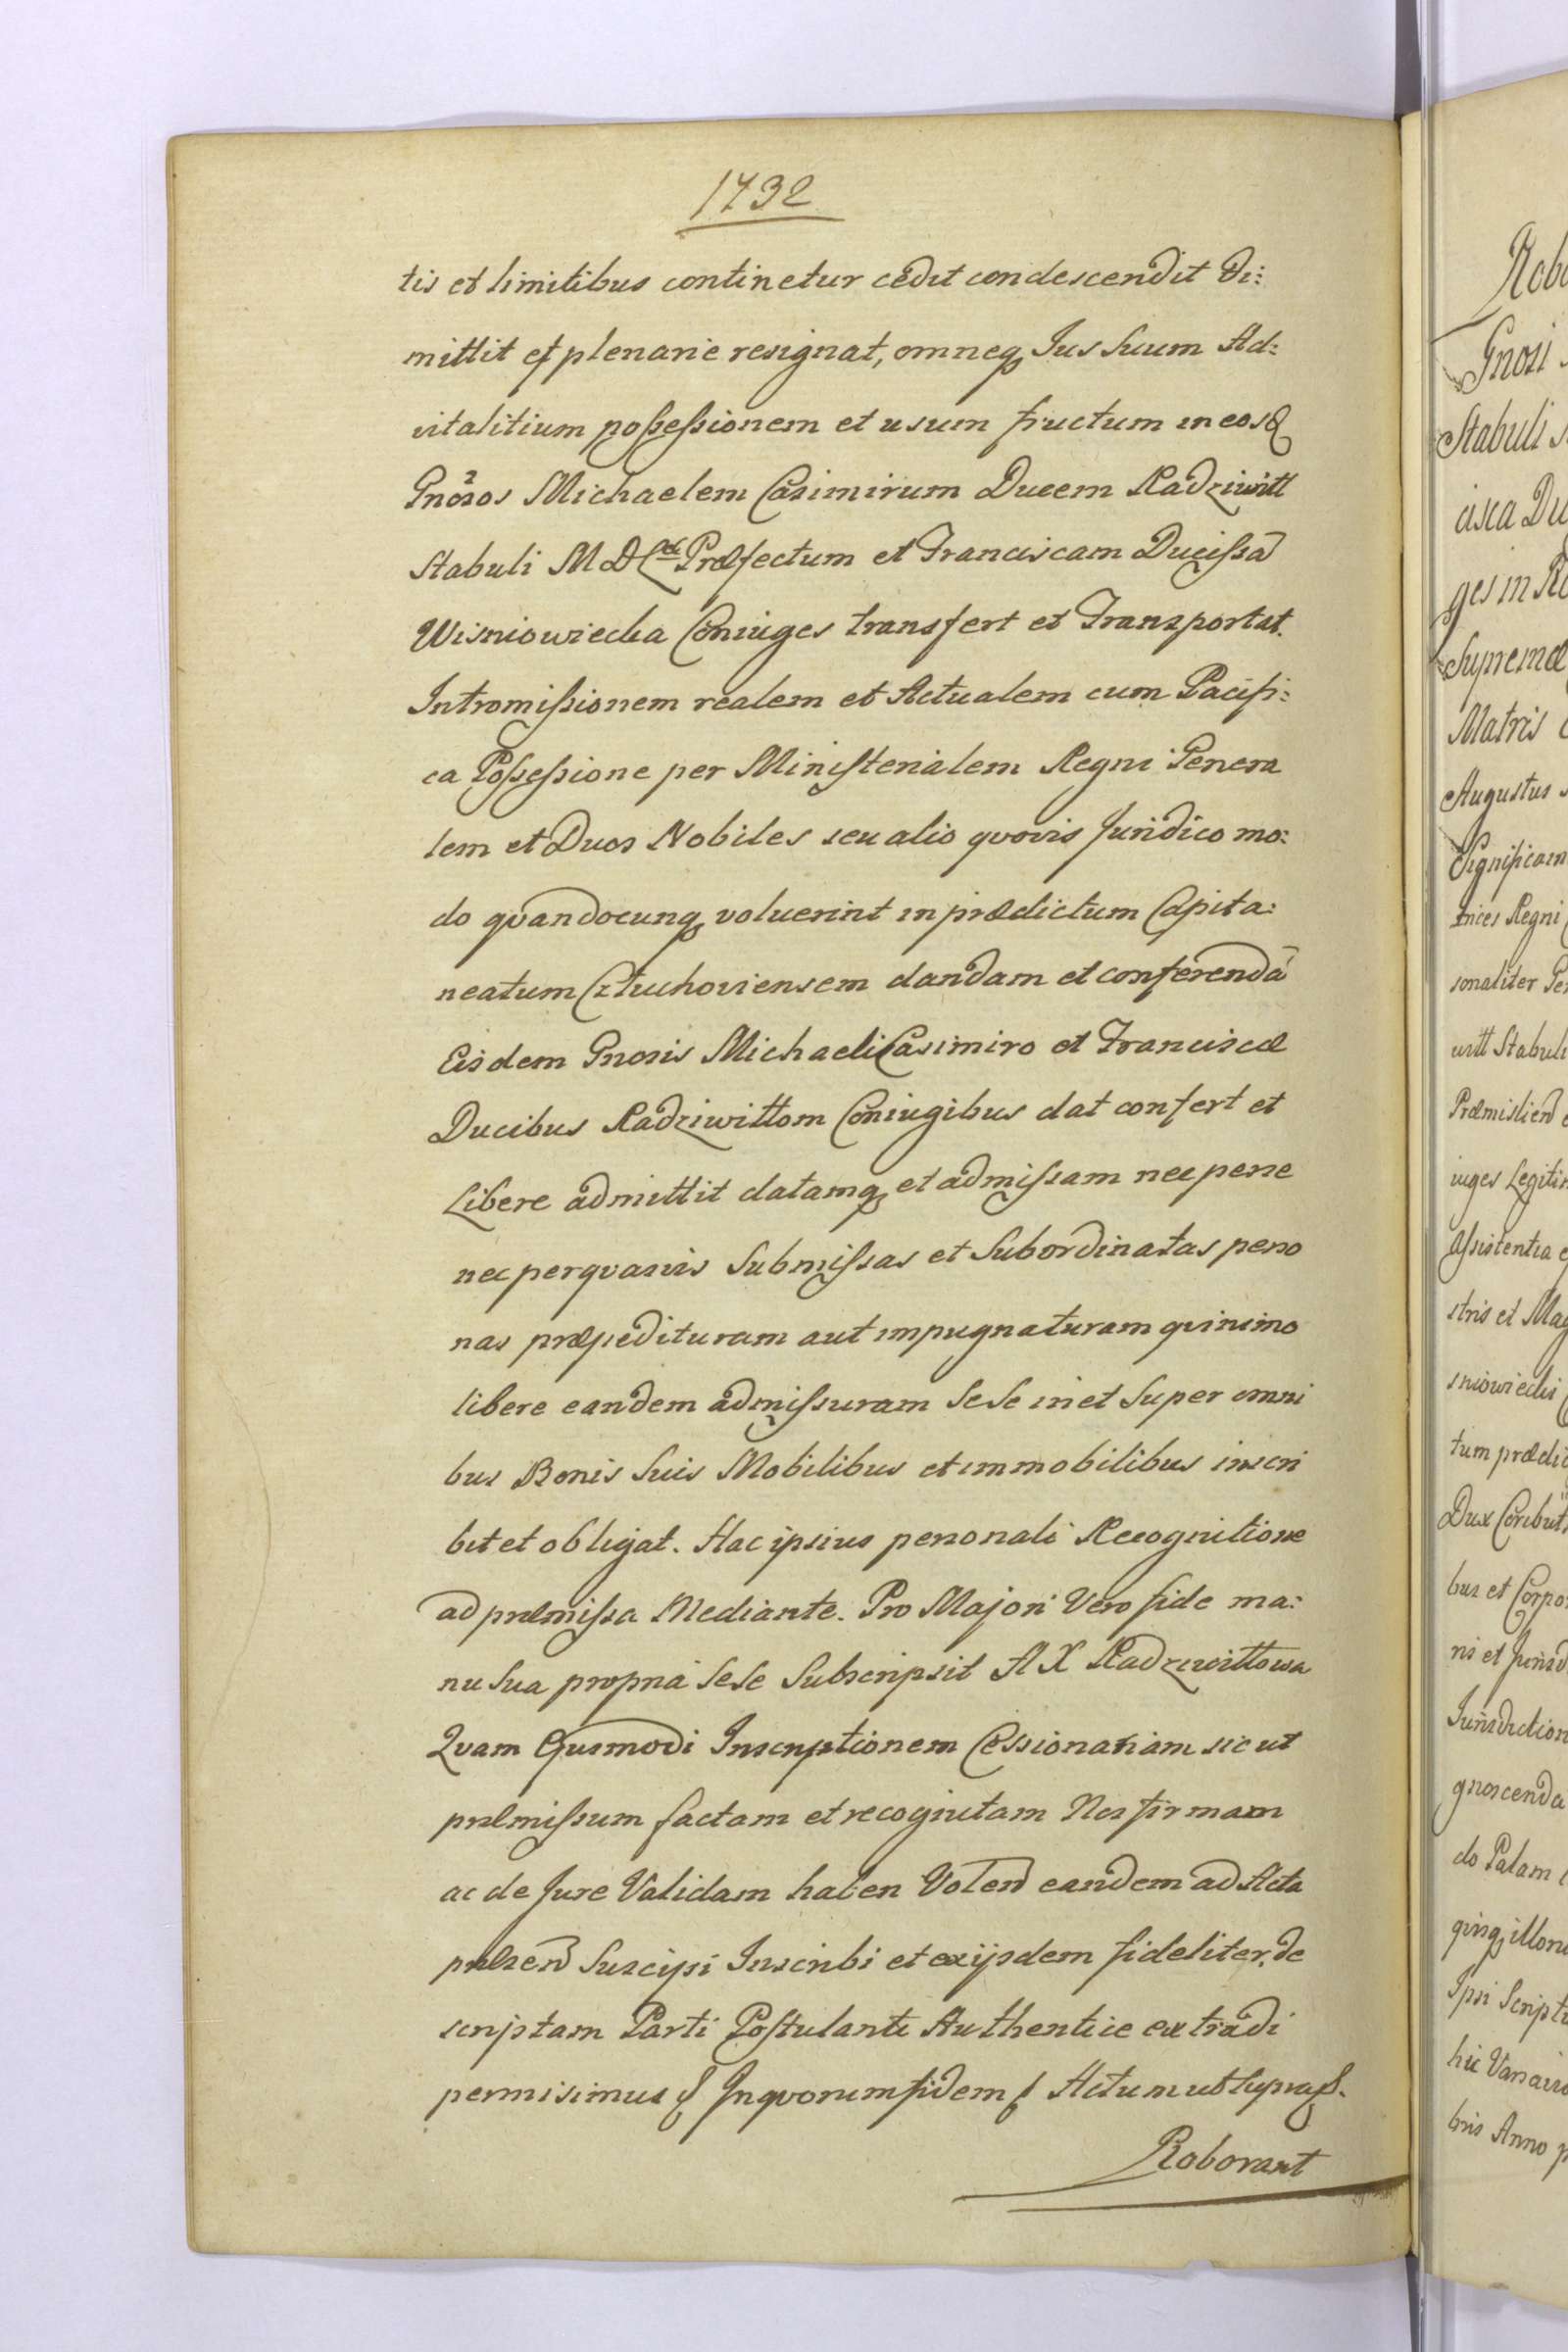 1732
tis et limitibus continetur cedit condescendit di:
mittit et plenarie resignat, omneq Jus Suum Ad:
vitalitium possessionem et usum fructum in eosq
Gnosos Michaelem Casimirum Ducem Radziwill
Stabuli M D L Præfectum et Franciscam Ducissā
Wisniowiecka Coniuges transfert et Transportat.
Intromissionem realem et Actualem cum Pacifi:
ca Possessione per Ministerialem Regni Genera
lem et Duos Nobiles seu alio qvovis Juridico mo:
do qvandocunq voluerint in prædictum Capita:
neatum Człuchoviensem dandam et conferendā
Eisdem Gnosis Michaeli Casimiro et Franciscæ
Ducibus Radziwillom Coniugibus dat confert et
Libere admittit datamq et admissam nec per se
nec per qvasvis Submissas et Subordinatas perso
nas præpedituram aut impugnaturam qvinimo
libere eandem admissuram Se Se in et Super omni
bus Bonis Suis Mobilibus et immobilibus inscri
bit et obligat. Hac ipsius personali Recognitione
ad præmissa Mediante. Pro Majori Vero fide ma:
nu Sua propria Se Se Subscripsit A X Radziwiłłowa
Qvam Ejusmodi Inscriptionem Cessionariam sic ut
præmissum factam et recognitam Nos firmam
ac de Jure Validam haben Volen eandem ad Acta
præsen Suscipi Inscribi et ex ijsdem fideliter de
scriptam Parti Postulanti Authentice extradi
permisimus Inqvorum fidem Actum ut Supra
Roborant
Robo
Gnosi
Stabuli
cisca Du
ges in
Supremæ
Matris
Augustus
Significam
trices Regni
sonaliter
will Stabuli
Præmislien
iuges Legitim
Assistentia
stris et Mag
sniowiecki
tum prædic
Dux Coribut
bus et Corpo
ris et Jurisd
Jurisdiction
gnoscenda
do Palam
illoru
Ipsi Scripta
hic Varsavia
bris Anno